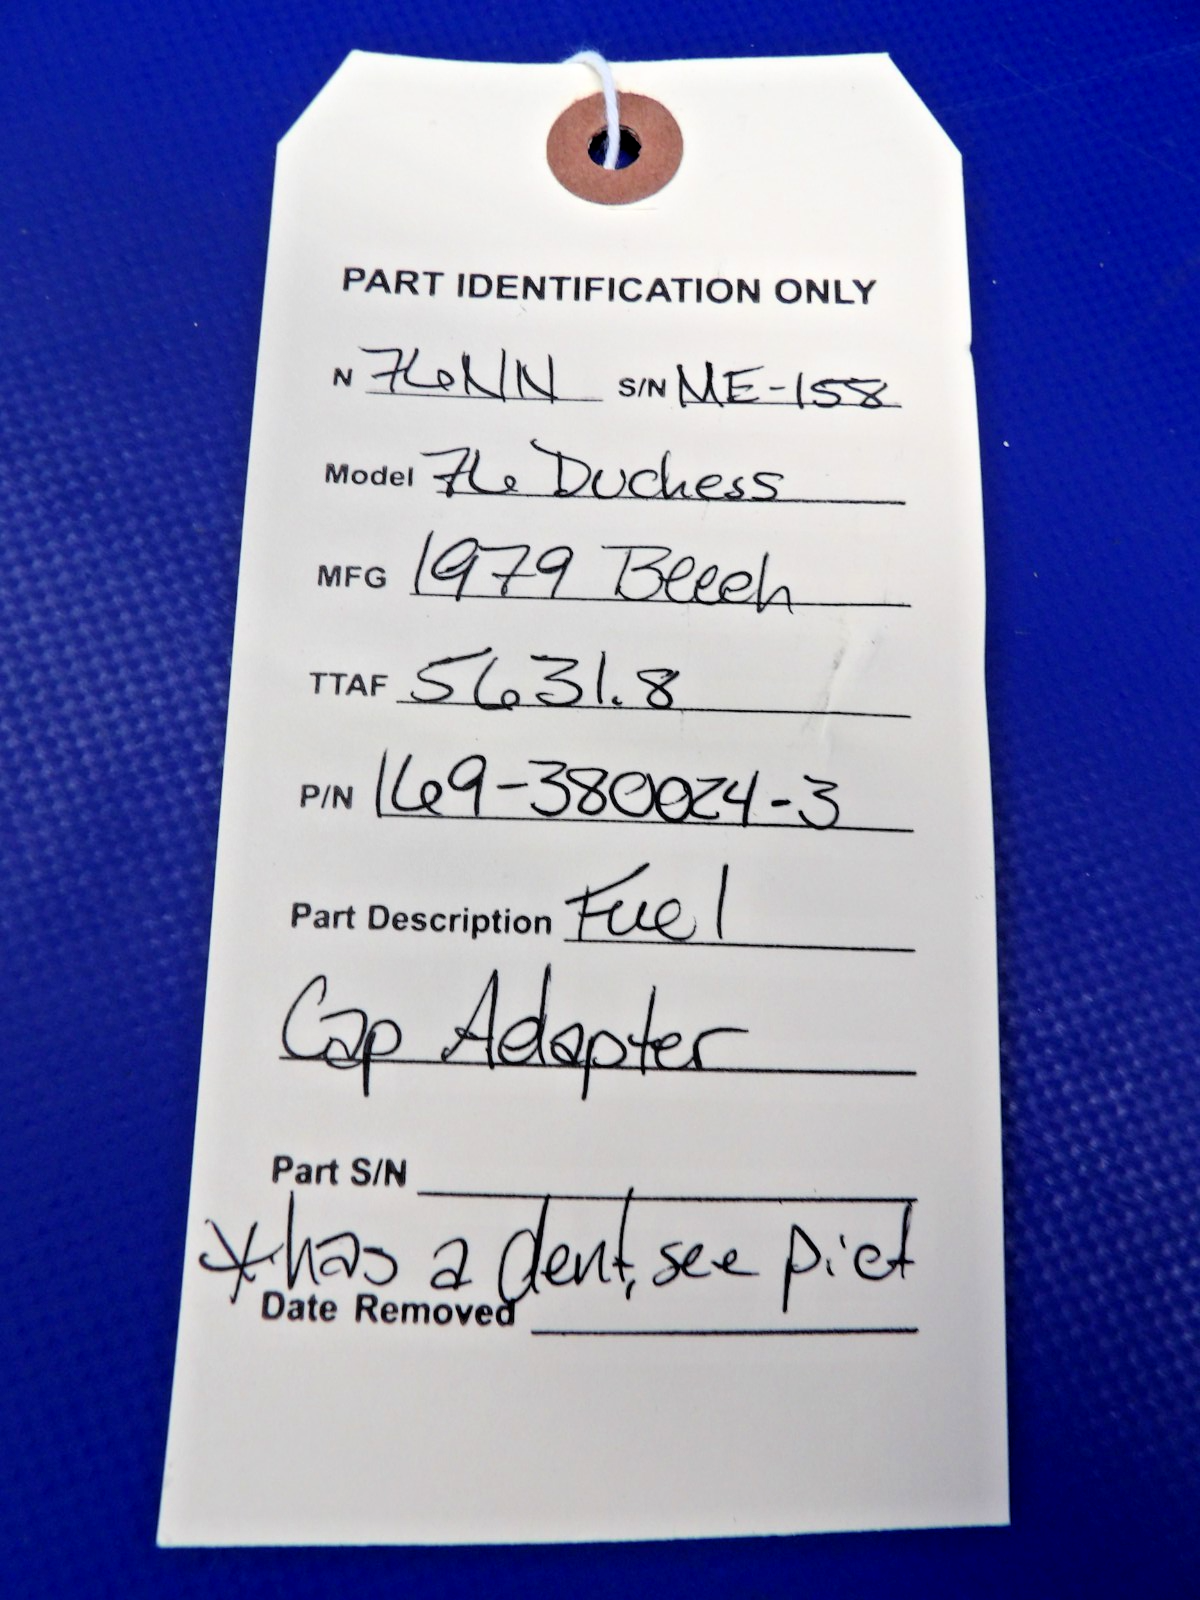 PART IDENTIFICATION ONLY
N 76NN S/N ME-158
Model 76 Duchess
MFG 1979 Beech
TTAF 5631.8
P/N 169-380024-3
Part Description Fuel
Cap Adapter
Part S/N
*has a dent, see pict
Date Removed